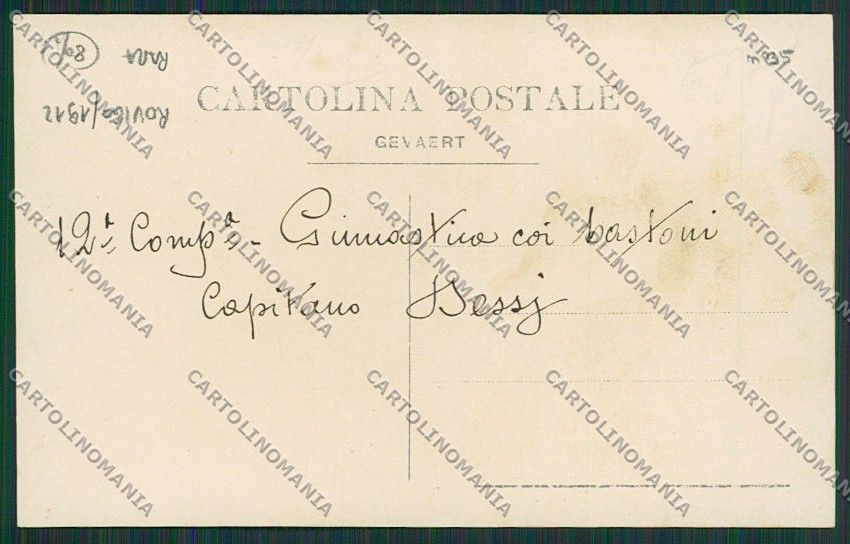 CARTOLINA POSTALE
GEVAERT
12ª Compª - Ginnastica coi bastoni
Capitano Dessj
ROVIGO/1912
RARA
CARTOLINOMANIA